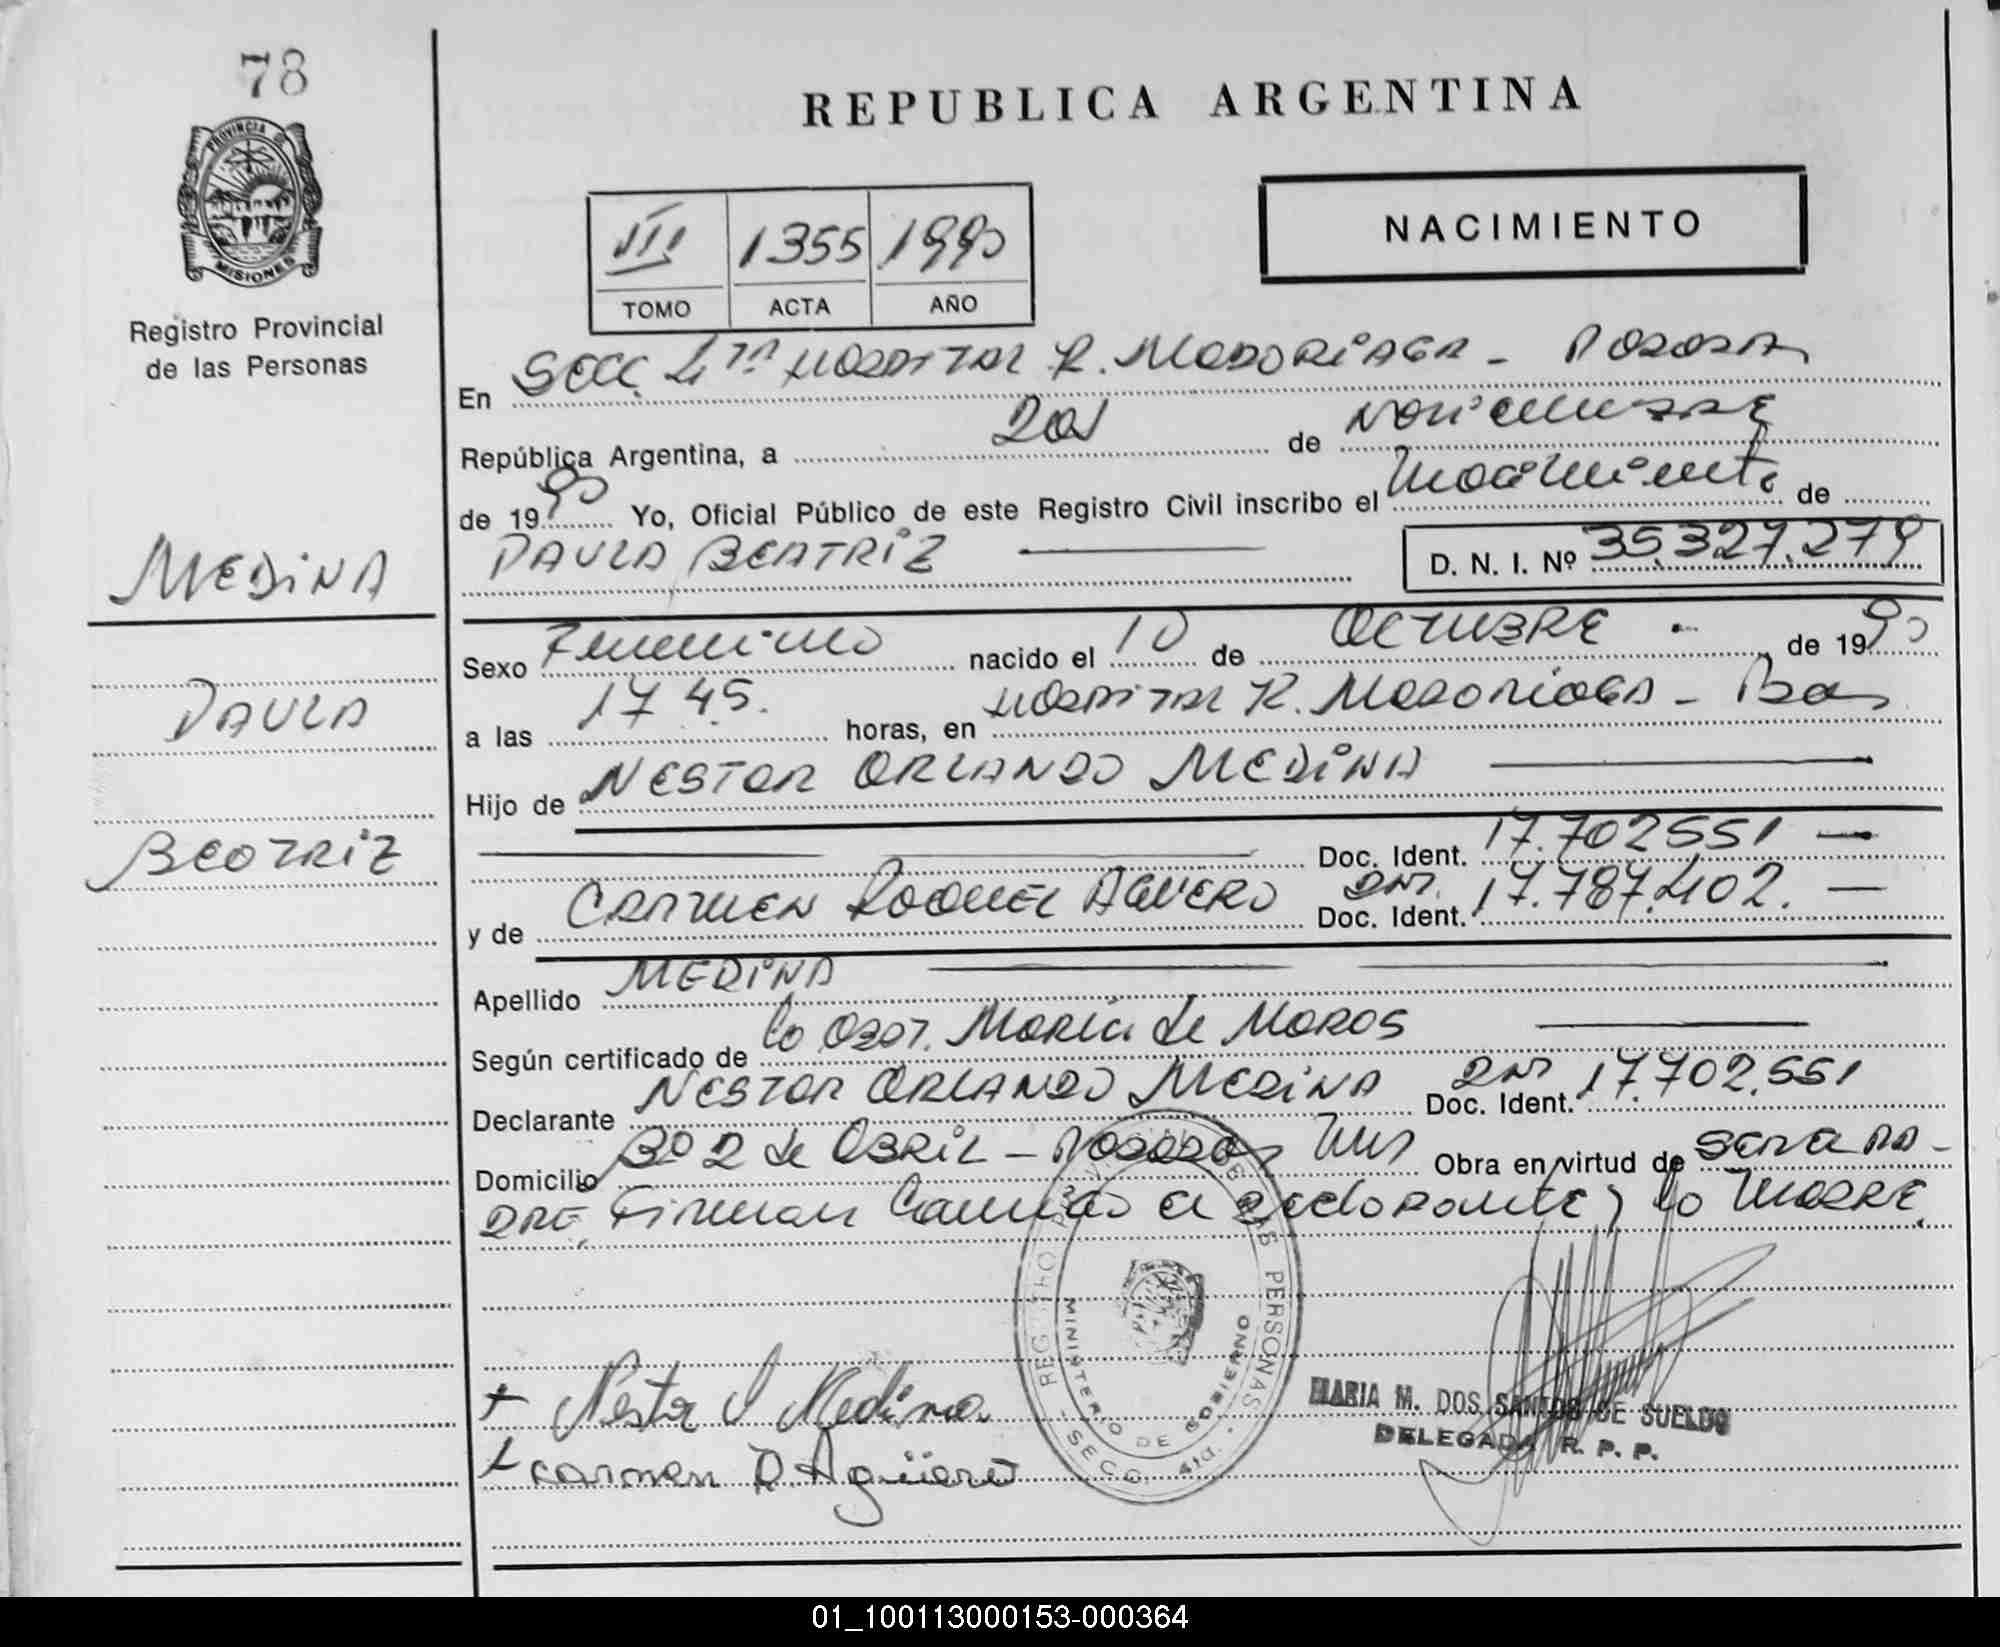 78
PROVINCIA DE
MISIONES
Registro Provincial
de las Personas
MEDINA
PAULA
BEATRIZ
REPUBLICA ARGENTINA
NACIMIENTO
III 1355 1990
TOMO ACTA AÑO
En SECC 4ta HOSPITAL R. MADARIAGA - POSADAS
República Argentina, a 20 de NOVIEMBRE
de 1990 Yo, Oficial Público de este Registro Civil inscribo el nacimiento de
PAULA BEATRIZ D. N. I. Nº 35.327.279
Sexo Femenino nacido el 10 de OCTUBRE de 1990
a las 17 45. horas, en HOSPITAL R. MADARIAGA - Pdas
Hijo de NESTOR ORLANDO MEDINA
Doc. Ident. 17.702551
y de CARMEN RAQUEL AGUERO DNI. Doc. Ident. 17.787.402.
Apellido MEDINA
Según certificado de la Obst. María de MOROS
Declarante NESTOR ORLANDO MEDINA DNI Doc. Ident. 17.702.551
Domicilio Bº 2 de ABRIL - POSADAS Mns Obra en virtud de SER EL PA-
DRE, Firman el DECLARANTE y la MADRE.
+ Nestor O Medina
+ carmen R. Agüero
REGISTRO PROVINCIAL DE LAS PERSONAS
MINISTERIO DE GOBIERNO
- SECC. 4ta. -
MARIA M. DOS SANTOS DE SUELDO
DELEGADA R. P. P.
01_100113000153-000364